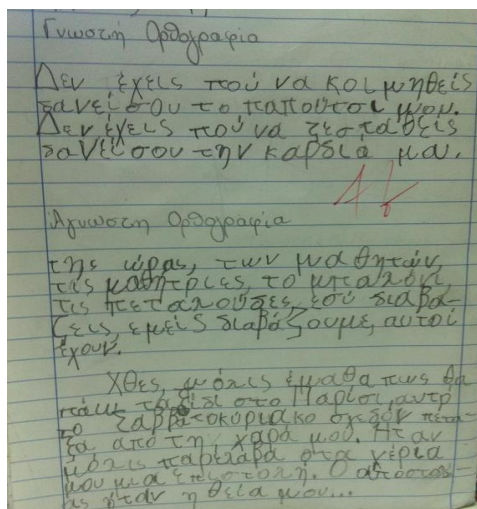 Γνωστή Ορθογραφία
Δεν έχεις πού να κοιμηθείς
δανείσου το παπούτσι μου.
Δεν έχεις πού να ζεσταθείς
δανείσου την καρδιά μου.
Άγνωστη Ορθογραφία
της ώρας, των μαθητών,
τις μαθήτριες, το μπαλόνι,
τις πεταλούδες, εσύ διαβά-
ζεις, εμείς διαβάζουμε, αυτοί
έχουν.
Χθες, μόλις έμαθα πως θα
πάω ταξίδι στο Παρίσι, αυτό
το Σαββατοκύριακο σχεδόν πετα-
ξα από την χαρά μου. Ήταν
μόλις παρέλαβα στα χέρια
μου μια επιστολή. Ο αποστολ-
ας ήταν η θεία μου...